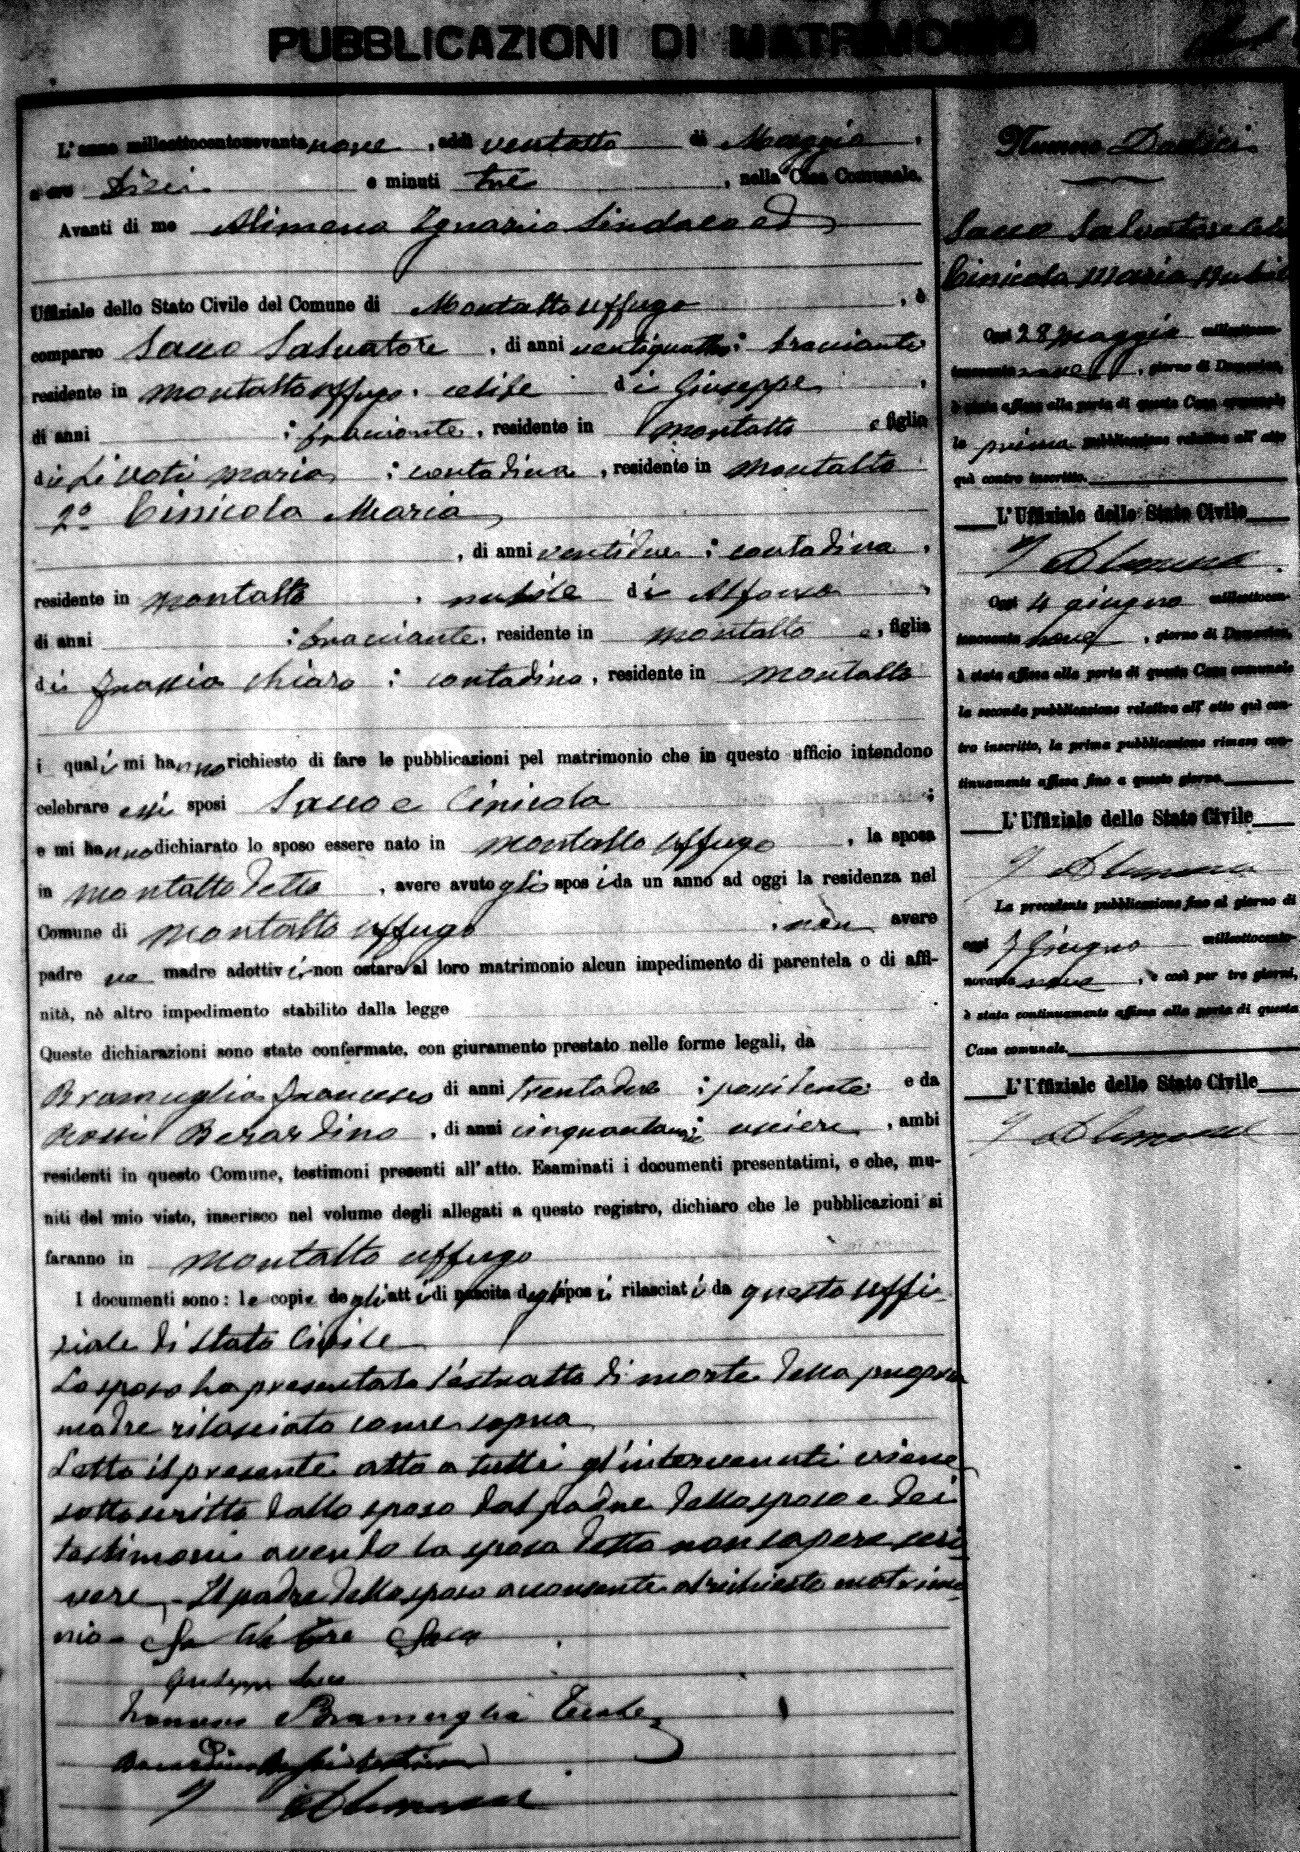 PUBBLICAZIONI DI MATRIMONIO
L'anno milleottocentonovantanove, addì ventotto di Maggio,
a ore dieci e minuti tre, nella Casa Comunale.
Avanti di me Alimena Ignazio Sindaco ed
Uffiziale dello Stato Civile del Comune di Montalto Uffugo, è
comparso Sacco Salvatore, di anni ventiquattro; bracciante
residente in Montalto Uffugo. celibe di Giuseppe,
di anni ; bracciante, residente in Montalto e figlio
di Li Voti Maria ; contadina, residente in Montalto
2° Cinicola Maria
, di anni ventidue ; contadina,
residente in Montalto , nubile di Alfonso,
di anni ; bracciante, residente in Montalto e, figlia
di Chiara ; contadina, residente in Montalto
i quali mi hanno richiesto di fare le pubblicazioni pel matrimonio che in questo ufficio intendono
celebrare essi sposi Sacco e Cinicola ;
e mi hanno dichiarato lo sposo essere nato in Montalto Uffugo, la sposa
in Montalto detto, avere avuto gli sposi da un anno ad oggi la residenza nel
Comune di Montalto Uffugo , non avere
padre ne madre adottivi, non ostare al loro matrimonio alcun impedimento di parentela o di affi-
nità, nè altro impedimento stabilito dalla legge
Queste dichiarazioni sono state confermate, con giuramento prestato nelle forme legali, da
Bramuglia Francesco di anni trentadue ; possidente e da
Rossi Berardino, di anni ; usciere, ambi
residenti in questo Comune, testimoni presenti all'atto. Esaminati i documenti presentatimi, e che, mu-
niti del mio visto, inserisco nel volume degli allegati a questo registro, dichiaro che le pubblicazioni si
faranno in Montalto Uffugo
I documenti sono: le copie degli atti di nascita degli sposi, rilasciati da questo Uffi-
ziale di Stato Civile
Lo sposo ha presentato l'estratto di morte della propria
madre rilasciato come sopra
Letto il presente atto a tutti gl'intervenuti viene
sottoscritto dallo sposo dal padre dello sposo e dei
testimoni avendo la sposa detto non sapere scri
vere. Il padre dello sposo acconsente al richiesto matrimo
nio. Salvatore Sacco
Giuseppe Sacco
Francesco Bramuglia Teste
Berardino Rossi testimone
I Alimena
Numero Dodici
Sacco Salvatore celibe
Cinicola Maria Nubile
Oggi 28 maggio milleottocen-
tonovanta nove, giorno di Domenica,
è stata affissa alla porta di questa Casa comunale
la prima pubblicazione relativa all'atto
quì contro inscritto.
L'Uffiziale dello Stato Civile
I Alimena
Oggi 4 giugno milleottocen-
tonovanta nove, giorno di Domenica,
è stata affissa alla porta di questa Casa comunale
la seconda pubblicazione relativa all'atto quì con-
tro inscritto, la prima pubblicazione rimase con-
tinuamente affissa fino a questo giorno.
L'Uffiziale dello Stato Civile
I Alimena
La precedente pubblicazione fino al giorno di
oggi 7 Giugno milleottocento-
novanta nove, e così per tre giorni,
è stata continuamente affissa alla porta di questa
Casa comunale.
L'Uffiziale dello Stato Civile
I Alimena